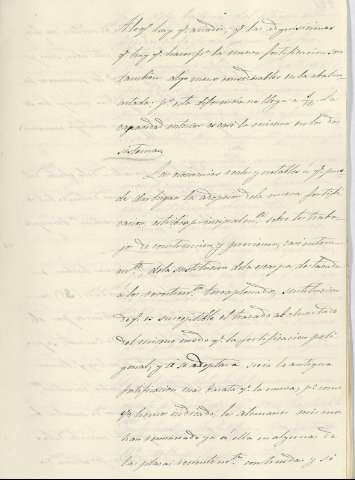 A lo q.e hay q.e añadir, q.e las adquisiciones
q.e hay q.e hacer p.a la nueva fortificacion son
tambien algo menos considerables en la abaluartada
p.o esta diferencia no llega a 1/10. La
capacidad interior es casi la misma en los dos
sistemas.
Las economias reales y notables á q.e pue
de dar lugar la adopcion de la nueva fortifi
cacion, estriban principalm.te sobre los traba
jos de construccion y provienen, casi entera
m.te de la sustitucion de la escarpa destacada
a los revestim.tos terraplenados, sustitucion
de q.e es susceptible el trazado abaluartado
del mismo modo q.e la fortificacion poli
gonal; y si se adoptara seria la antigua
fortificacion mas barata q.e la nueva; p.o como
q.e hemos indicado, los alemanes mismos
han renunciado ya á ella en algunas de
las plazas recientem.te construidas y si